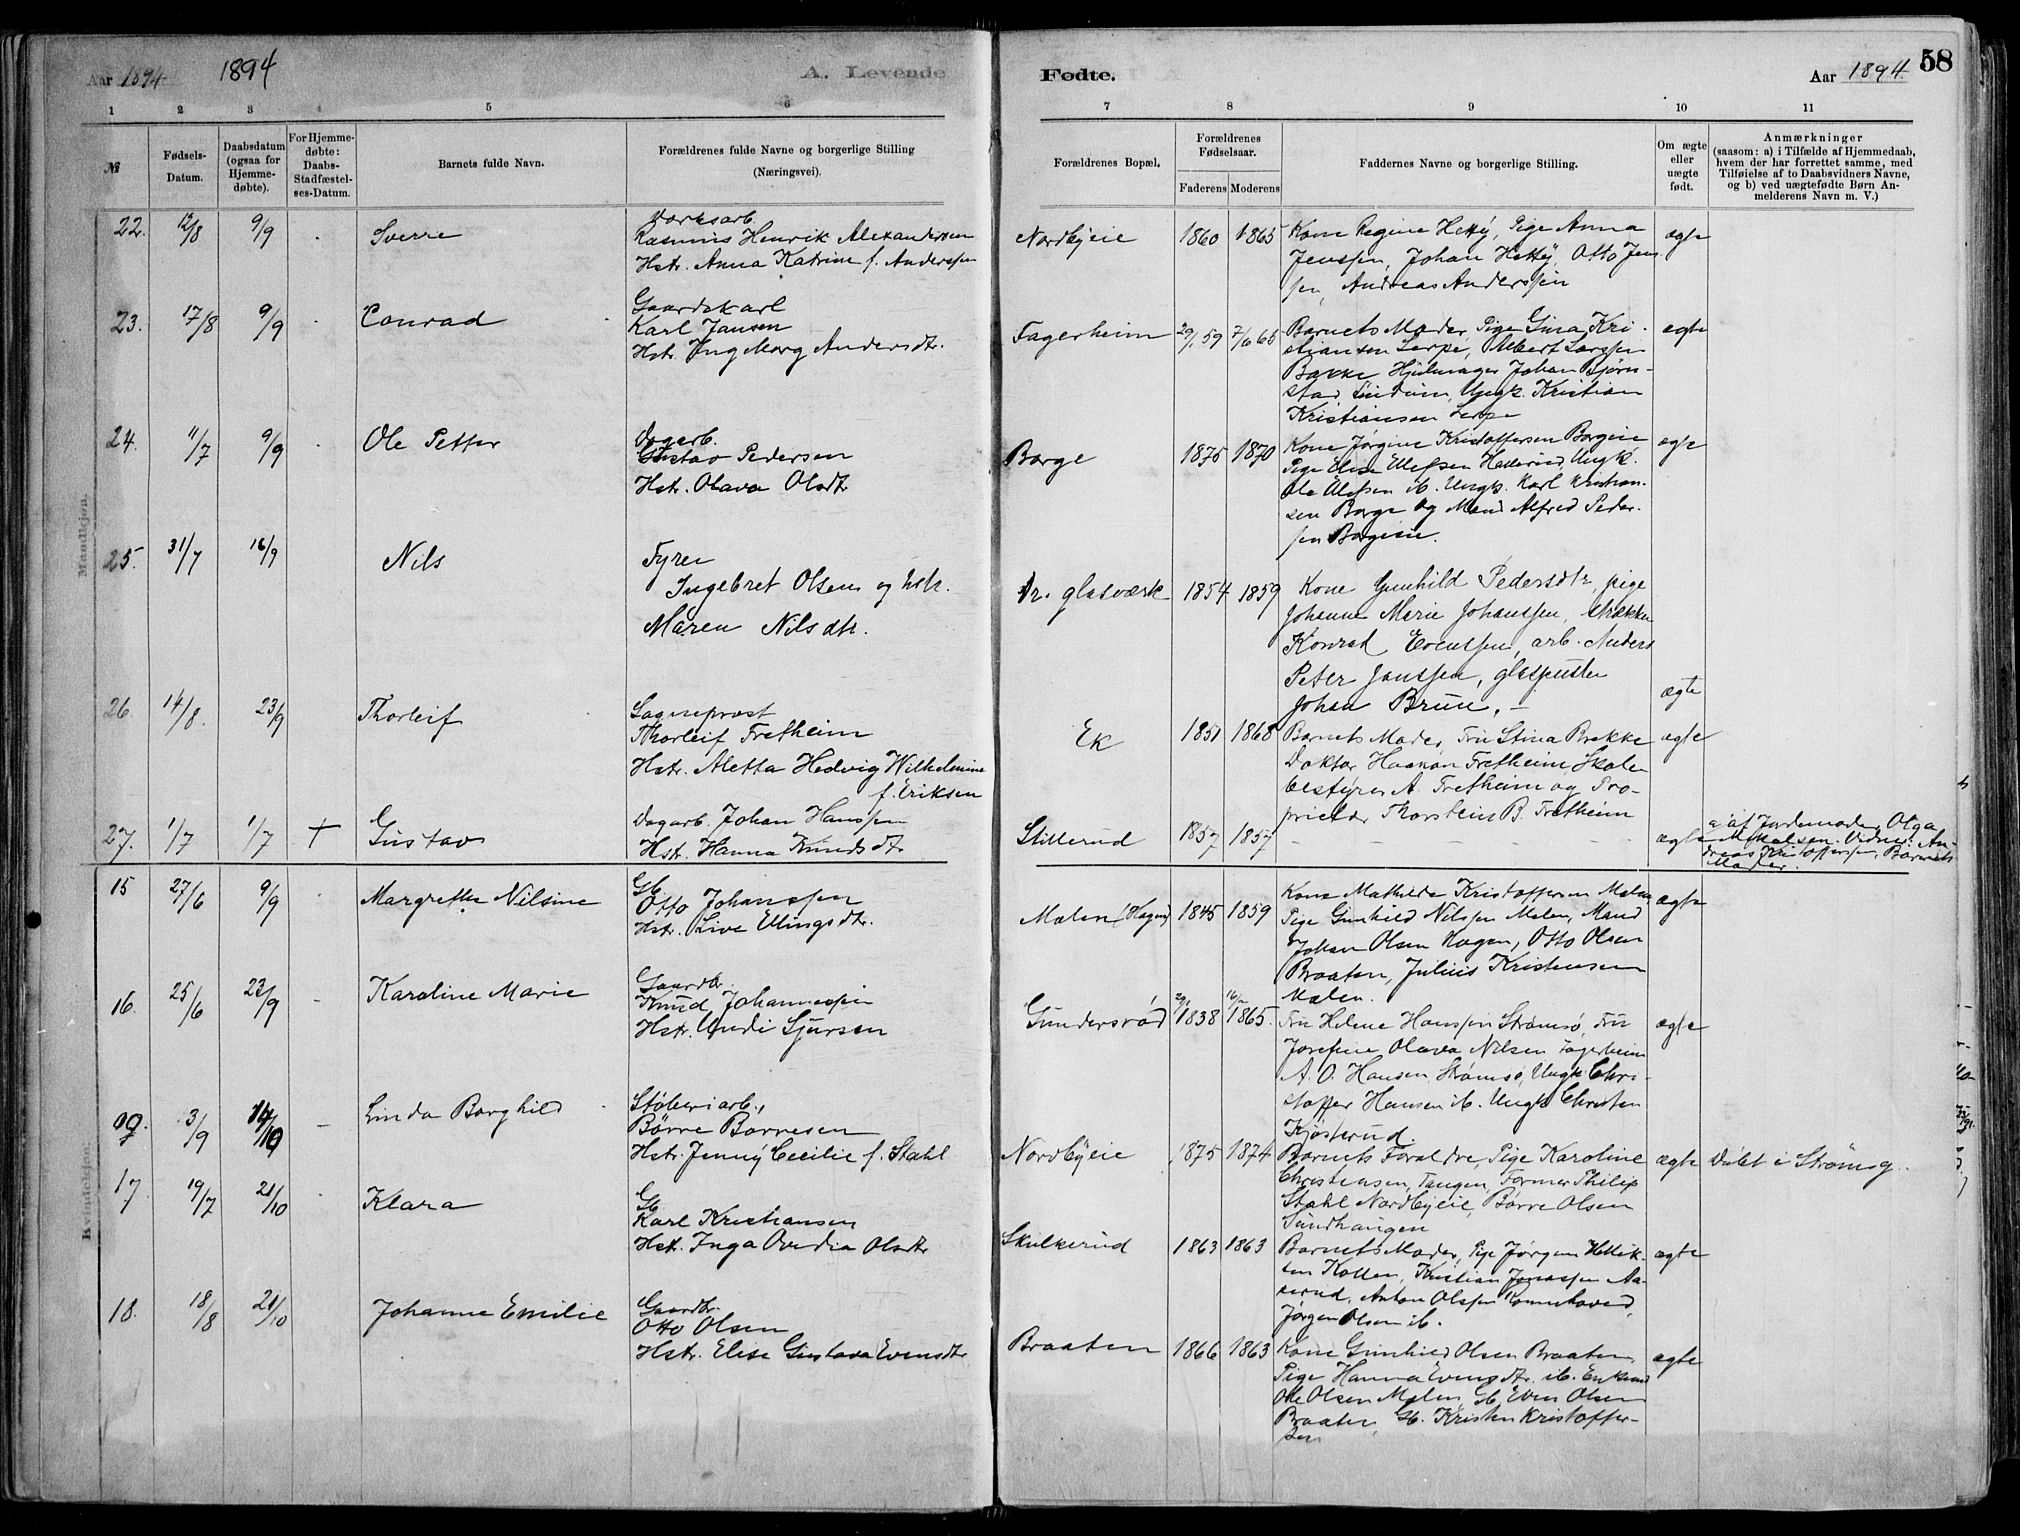 Aar 1894 1894 A. Levende
Fødte. Aar 1894. 58
1 2 3 4 5 6
7 8 9 10 11
№ Fødsels-Datum. Daabsdatum (ogsaa for Hjemmedøbte). For Hjemmedøbte: Daabs-Stadfæstelses-Datum. Barnets fulde Navn. Forældrenes fulde Navne og borgerlige Stilling (Næringsvei).
Forældrenes Bopæl. Forældrenes Fødselsaar. Faderens Moderens Faddernes Navne og borgerlige Stilling. Om ægte eller uægte født. Anmærkninger
(saasom: a) i Tilfælde af Hjemmedaab,
hvem der har forrettet samme, med
Tilføielse af to Daabsvidners Navne,
og b) ved uægtefødte Børn An-
melderens Navn m. V.)
Mandkjøn.
22. 12/8 9/9 Sverre
Rasmus Henrik Alexandersen
Hstr. Anna Katrine f. Anderssen
Nordbyeie 1860 1865
Kone Regine Hettý, Pige Anna
Jenssen, Johan Hettý, Otto Jens
sen, Andreas Anderssen
ægte
23. 17/8 9/9 Conrad
Gaardskarl
Karl Jansen
Hstr. Ingeborg Andersdtr.
Fagerheim 29/1 59 7/6 65
Barnets Moder, Pige Gina Kri-
stiansen Lerpe, Albert Larssen
Bakke Hjulmager Johan Bjørn-
stad, Ungk. Kristian
Kristiansen Lerpe
ægte
24. 11/7 9/9 Ole Petter
Dagarb.
Gustav Pedersen
Hstr. Olava Olsdtr
Borge 1875 1870
Kone Jørgine Kristoffersen Borgeie
Pige Elise Ellefsen Ungk.
Ole Olefsen ib. Ungk. Karl Kristian-
sen Borge og Mand Alfred Peder-
sen Borgeie.
ægte
25. 31/7 16/9 Nils
Fyrer
Ingebret Olsen og hstr.
Maren Nilsdtr.
Dr. glasværk 1854 1859
Kone Gunhild Pedersdtr, pige
Johanne Marie Johanssen, strækker
Konrad Evenssen, arb. Anders
Peter Janssen, glaspuster
Johan Bruu. –
ægte
26. 14/8. 23/9 Thorleif
Sogneprest
Thorleif Fretheim
Hstr. Aletta Hedvig Wilhelmine
f. Eriksen
Ek 1851 1868
Barnets Moder, Fru Stina Brekke
Doktor Haakon Fretheim, Skole
bestyrer A. Fretheim og Pro-
prietær Thorstein B. Fretheim
ægte
27. 1/7 1/7 + Gustav
Dagarb. Johan Hanssen
Hstr. Hanna Knudsdtr
Stillerud 1857 1857 ægte
a) af Jordemoder Olga
Vidner: An-
dreas Kristoffersen, Barnets
Moder.
Kvindekjøn.
15 27/6 9/9 Margrethe Nilsine
Gb.
Otto Johanssen
Hstr. Live Ellingsdtr.
Mælen (Hagen) 1845 1859
Kone Mathilde Kristoffersen Mælen
Pige Gunhild Nilssen Mælen, Mand
Johan Olsen Hagen, Otto Olsen
Braaten, Julius Kristensen
Mælen.
ægte
16. 25/6 23/9 Karoline Marie
Gaardbr.
Knud Johannessen
Hstr. Undi Sjursen
Gundersrød 29/1 1838 16/2 1865.
Fru Helene Hanssen Strømsø, Fru
Josefine Olava Nilsen Fagerheim
A. O. Hansen, Strømsø, Ungk. Chri-
stoffer Hansen ib. Ungk Christen
Kjøsterud.
ægte
09. 3/9 14/10 – Linda Borghild
Støberiarb.,
Børre Børresen
Hstr. Jenny Cecilie f. Stahl
Nordbyeie 1875 1874
Barnets Forældre, Pige Karoline
Christensen, Tangen, Former Philip
Stahl Nordbyeie, Børre Olsen
Sundhaugen
ægte Døbt i Strømsø.
17 19/7 21/10 Klara
Gb.
Karl Kristiansen
Hstr. Inga Ovedia Olsdtr
Skulkerud 1863 1863
Barnets Moder, Pige Jørgine Hellik-
sen Kollen, Kristian Jonassen Aa-
serud, Anton Olssen
Jørgen Olsen ib.
ægte
18. 18/8 21/10 Johanne Emilie
Gaardbr.
Otto Olsen
Hstr. Elise Gustava Evensdtr
Braaten 1866 1863
Kone Gunhild Olsen Braaten,
Pige Hanna Evensdtr. ib. Enkemd
Ole Olsen Mælen, Gb. Even Olsen
Braaten, Gb. Kristen Kristoffer-
sen
ægte